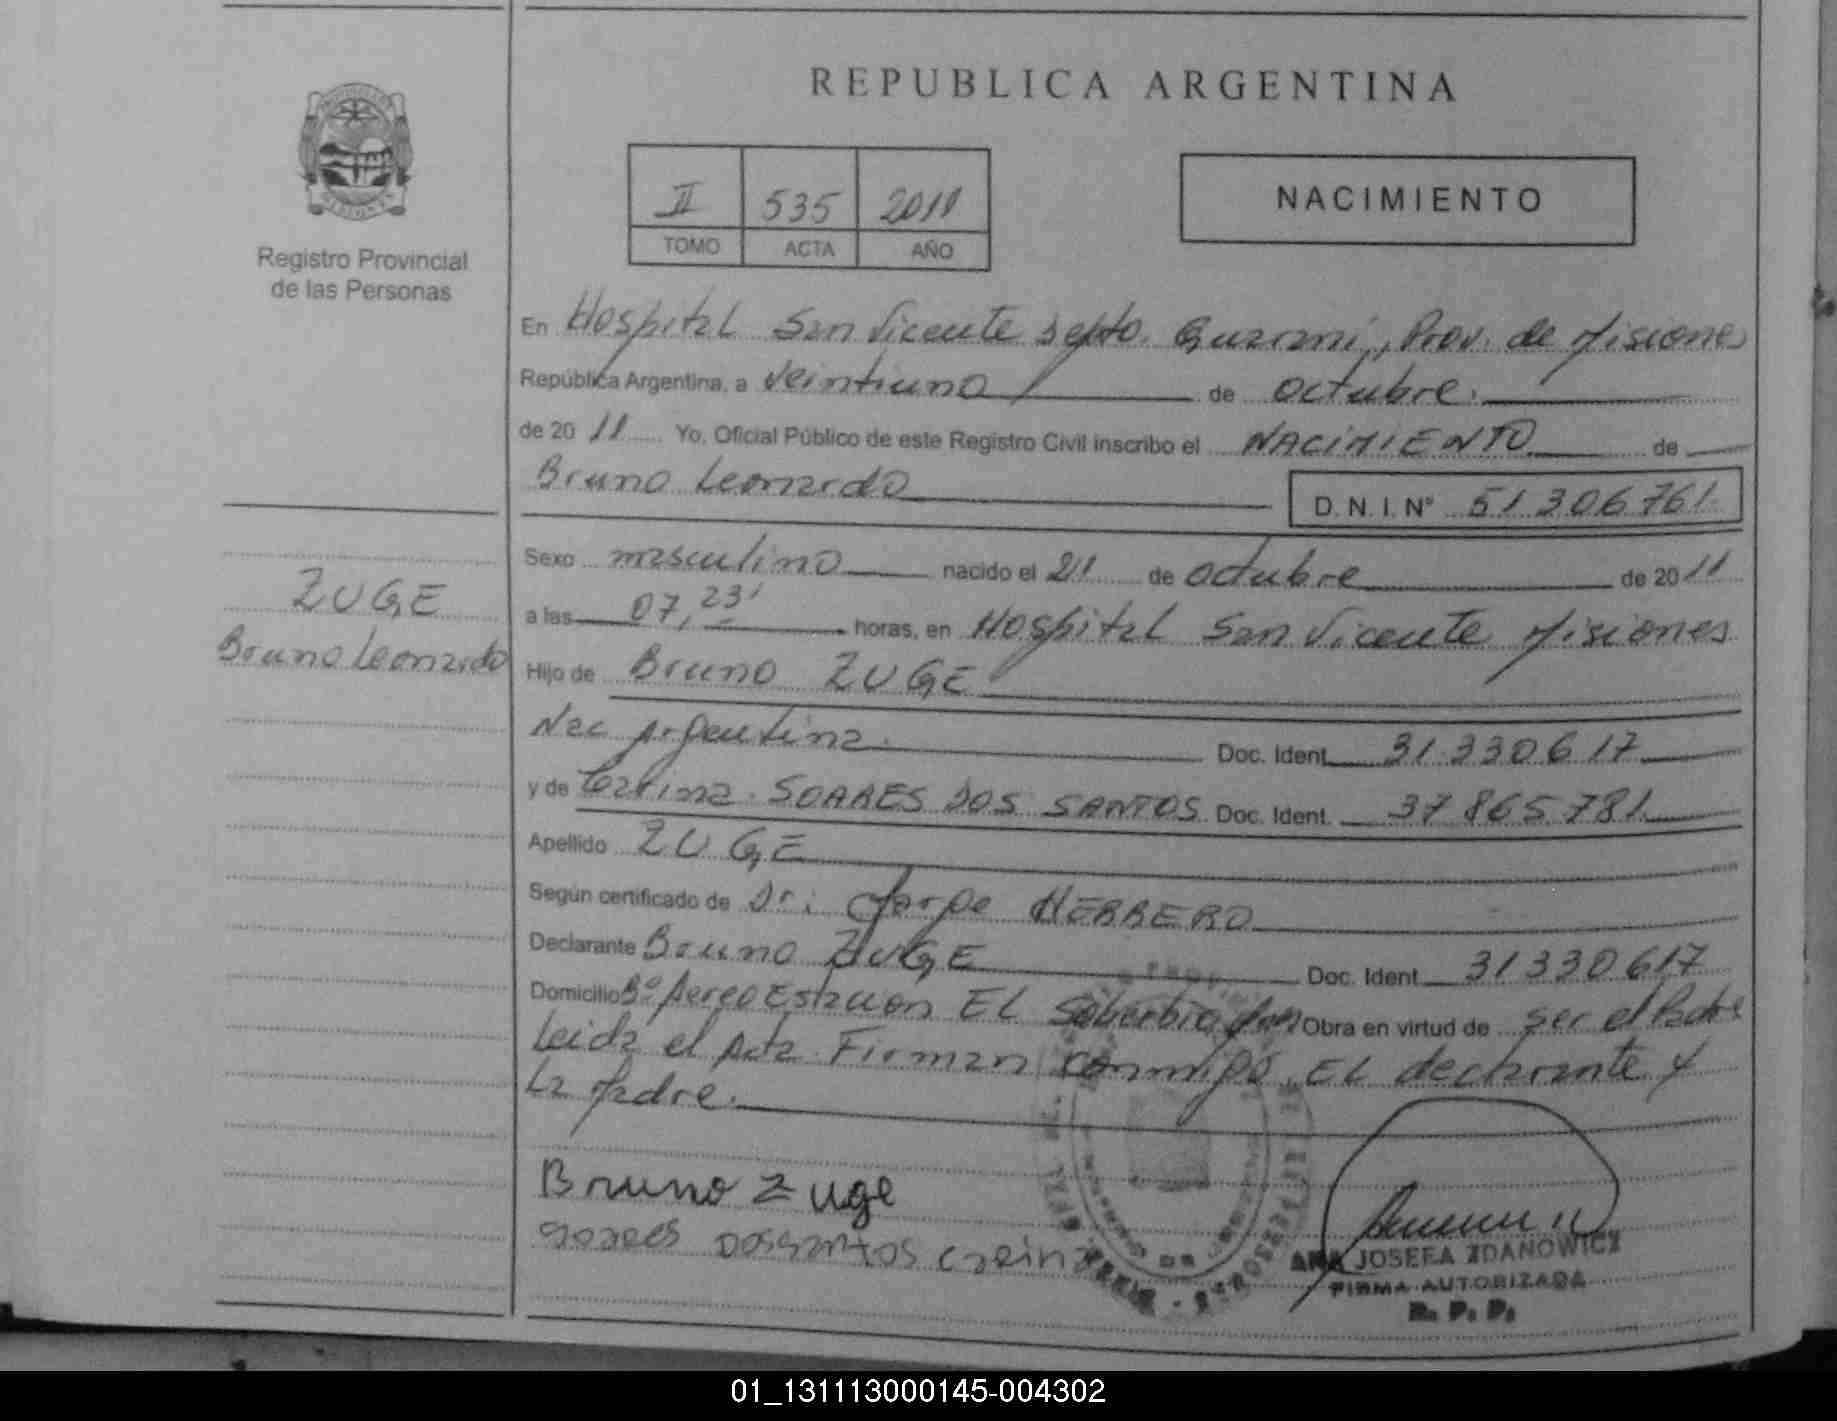 REPUBLICA ARGENTINA
II 535 2011
TOMO ACTA AÑO
NACIMIENTO
Registro Provincial
de las Personas
En Hospital San Vicente Depto. Guaraní, Prov. de Misiones
República Argentina, a veintiuno de octubre.
de 20 11 Yo, Oficial Público de este Registro Civil inscribo el NACIMIENTO de
Bruno Leonardo
D. N. I. Nº 51 306 761
ZUGE
Bruno Leonardo
Sexo masculino nacido el 21 de octubre de 20 11
a las 07, 23' horas, en Hospital San Vicente Misiones
Hijo de Bruno ZUGE
Nac Argentina. Doc. Ident. 31 330 617
y de Carina SOARES DOS SANTOS Doc. Ident. 37 865 781
Apellido ZUGE
Según certificado de Dr: Jorge HERRERO
Declarante Bruno ZUGE Doc. Ident 31 330 617
Domicilio Bº Aereo Estacion EL Soberbio Obra en virtud de ser el Padre
Leida el Acta Firman conmigo, EL declarante y
La Madre.
Bruno Zuge
soares Dossantos carina
ANA JOSEFA ZDANOWICZ
FIRMA AUTORIZADA
R. P. P.
01_131113000145-004302